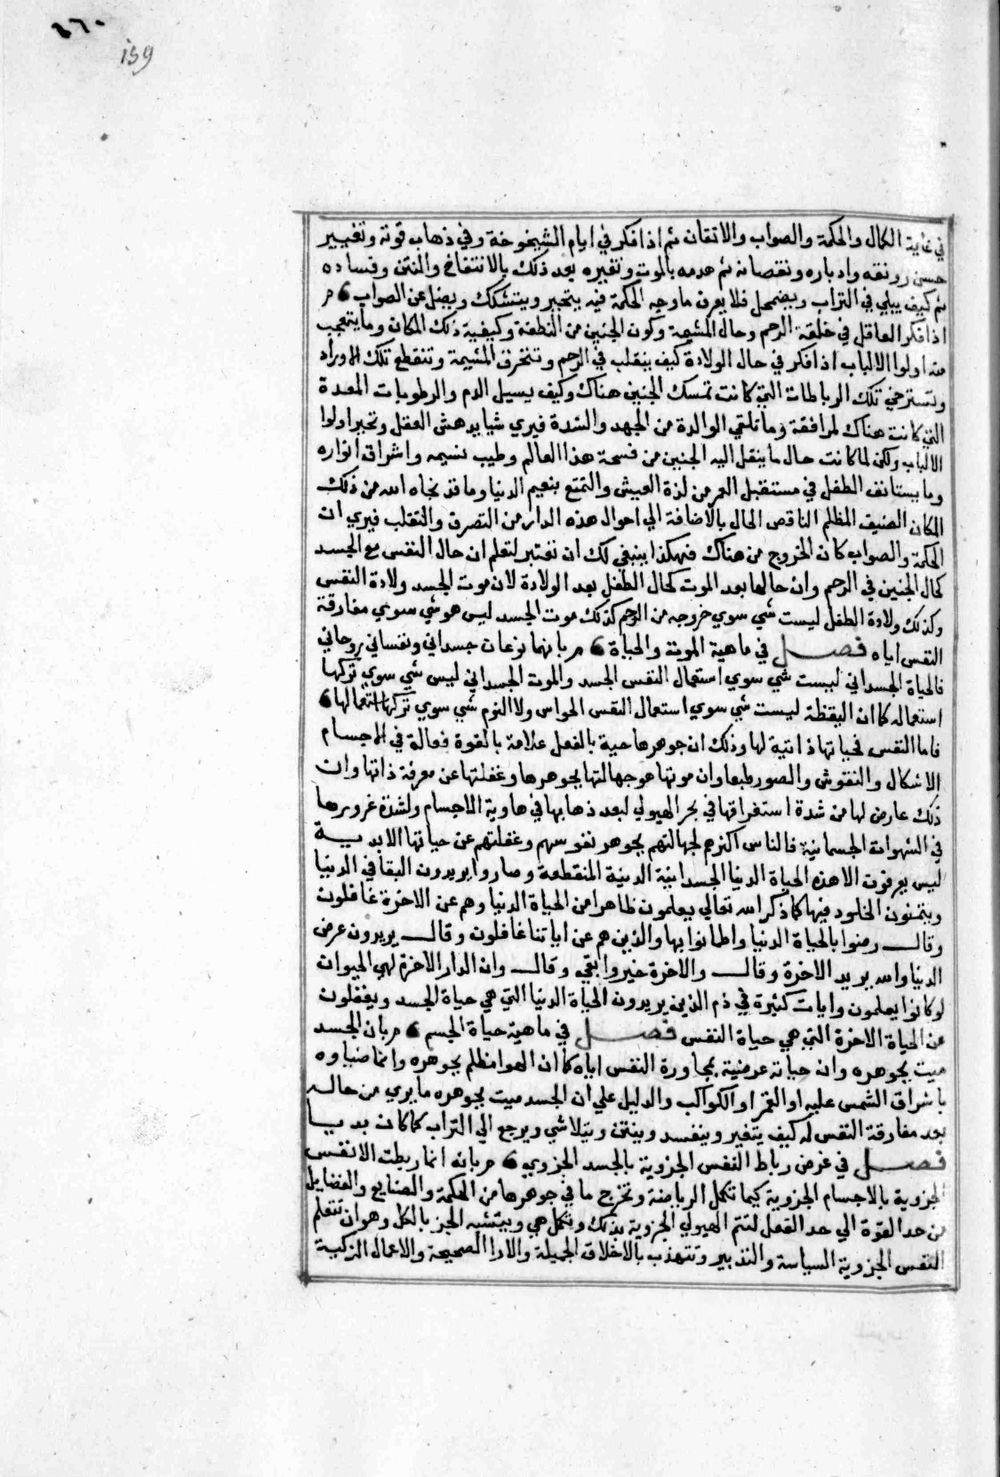 ٤٦٠
159
في غاية الكمال والحكمة والصواب والاتقان ثم اذا فكر في ايام الشيخوخة وفي ذهاب قوته وتغيير
حسن رونقه وادباره ونقصانه ثم هدمه بالموت وتغيره بعد ذلك بالانتفاخ والنتن وفساده
ثم كيف يبلي في التراب ويضمحل فلا يعرف ما وجه الحكمة فيه يتحير ويتشكك ويضل عن الصواب
اذا فكر العاقل في خلقة الرحم وحال المشيمة وكون الجنين من النطفة وكيفية ذلك المكان وما يتعجب
منه اولوا الالباب اذا فكر في حال الولادة كيف ينقلب في الرحم وتنخرق المشيمة وتنقطع تلك الاوراد
وتسترخي تلك الرباطات التي كانت تمسك الجنين هناك وكيف يسيل الدم والرطوبات المعدة
التي كانت هناك لمرافقة وما تلتي الوالدة من الجهد والشدة فيري شيا يدهش العقل وتحير اولوا
الالباب ولكن لما كانت حال ما ينقل اليه الجنين من فسحة هذا العالم وطيب نسيمه واشراق انواره
وما يستانف الطفل في مستقبل العمر من لذة العيش والتمتع بنعيم الدنيا وما قد نجاه الله من ذلك
المكان الضيق المظلم الناقص الحال بالاضافة الي احوال هذه الدار من التصرف والتقلب فيري ان
الحكمة والصواب كان الخروج من هناك فهكذا ينبغي لك ان تعتبر لتعلم ان حال النفس مع الجسد
كحال الجنين في الرحم وان حالها بعد الموت كحال الطفل بعد الولادة لان موت الجسد ولادة النفس
وكذلك ولادة الطفل ليست شي سوي خروجه من الرحم كذلك موت الجسد ليس هو شي سوي مفارقة
النفس اياه فصل في ماهية الموت والحياة بانهما نوعان جسداني ونفساني روحاني
فالحياة الجسداني ليست شي سوي استعمال النفس الجسد والموت الجسداني ليس شي سوي تركها
استعماله كما ان اليقظة ليست شي سوي استعمال النفس الحواس ولا النوم شي سوي تركها استعمالها
فاما النفس فحياتها ذاتية لها وذلك ان جوهرها حية بالفعل علامة بالقوة فعالة في الاجسام
الاشكال والنقوش والصور طبعا وان موتها هو جهالتها بجوهرها وغفلتها عن معرفة ذاتها وان
ذلك عارض لها من شدة استغراقها في بحر الهيولي لبعد ذهابها في هاوية الاجسام ولشدة غرورها
في الشهوات الجسمانية فالناس اكثرهم لجهالتهم بجوهر نفوسهم وغفلتهم عن حياتها الابدية
ليس يعرفون الا هذه الحياة الدنيا الجسدانية الدنية المنقطعة وصاروا يريدون البقا في الدنيا
ويتمنون الخلود فيها كما ذكر الله تعالي يعلمون ظاهرا من الحياة الدنيا وهم عن الاخرة غافلون
وقال رضوا بالحياة الدنيا واطمانوا بها والذين هم عن اياتنا غافلون وقال يريدون عرض
الدنيا والله يريد الاخرة وقال والاخرة خير وابقي وقال وان الدار الاخرة لهي الحيوان
لو كانوا يعلمون وايات كثيرة في ذم الذين يريدون الحياة الدنيا التي هي حياة الجسد ويغفلون
عن الحياة الاخرة التي هي حياة النفس فصل في ماهية حياة الجسم بان الجسد
ميت بجوهره وان حياته عرضية بمجاورة النفس اياه كما ان الهوا مظلم بجوهره وانما ضياوه
باشراق الشمس عليه او القمر او الكواكب والدليل علي ان الجسد ميت بجوهره ما يري من حاله
بعد مفارقة النفس له كيف يتغير ويفسد وينتن ويتلاشي ويرجع الي التراب كما كان بديا
فصل في غرض رباط النفس الجزوية بالجسد الجزوي بانه انما ربطت الانفس
الجزوية بالاجسام الجزوية كيما تكمل الرياضة وتخرج ما في جوهرها من الحكمة والصنايع والفضايل
من حد القوة الي حد الفعل لتتم الهيولي الجزوية بذلك وتكمل هي ويتشبه الجز بالكل وهو ان تتعلم
النفس الجزوية السياسة والتدبير وتتهذب بالاخلاق الجميلة والارا الصحيحة والاعمال الزكية